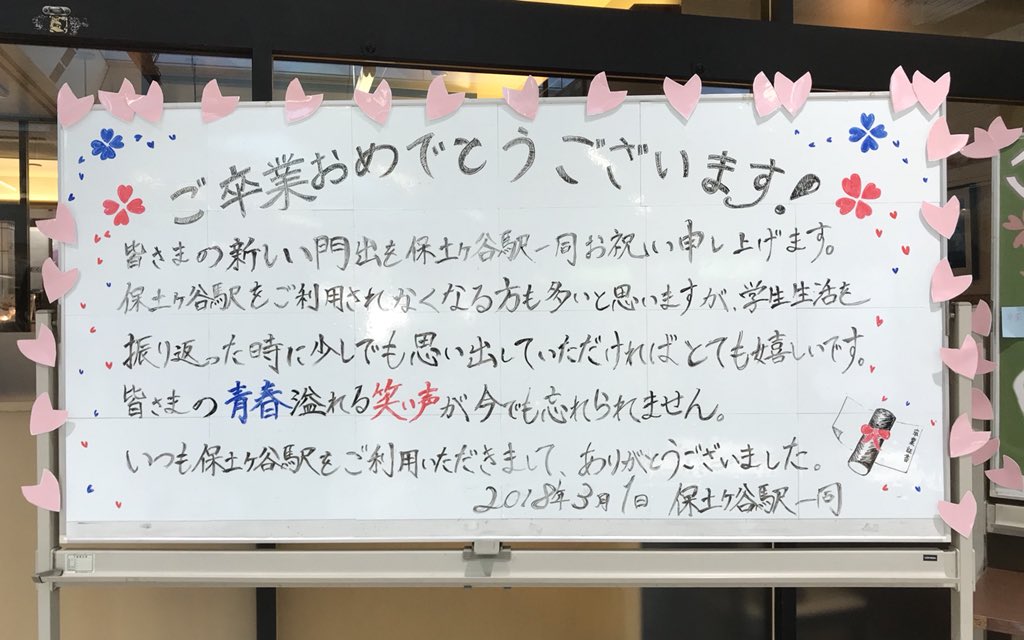 ご卒業おめでとうございます!
皆さまの新しい門出を保土ヶ谷駅一同お祝い申し上げます。
保土ヶ谷駅をご利用されなくなる方も多いと思いますが、学生生活を
振り返った時に少しでも思い出していただければとても嬉しいです。
皆さまの青春溢れる笑い声が今でも忘れられません。
いつも保土ヶ谷駅をご利用いただきまして、ありがとうございました。
2018年3月1日 保土ヶ谷駅一同